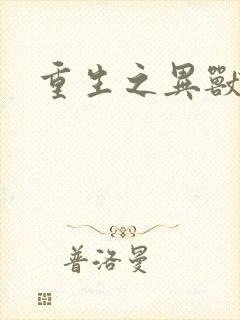 重生之異獸
普洛曼